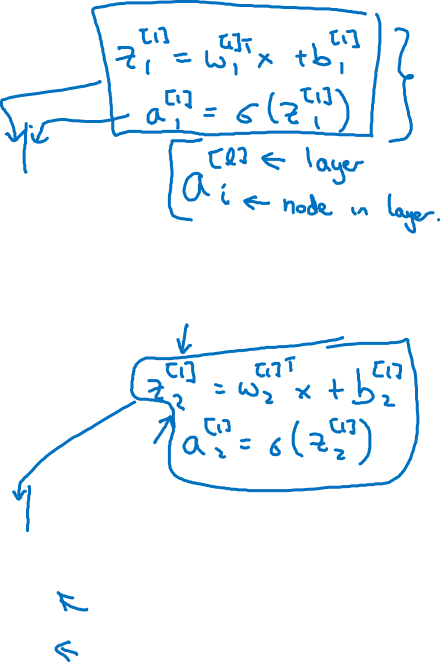 z₁^[1] = w₁^[1]T x + b₁^[1]
a₁^[1] = σ(z₁^[1])
a_i^[l] ← layer
← node in layer.
z₂^[1] = w₂^[1]T x + b₂^[1]
a₂^[1] = σ(z₂^[1])